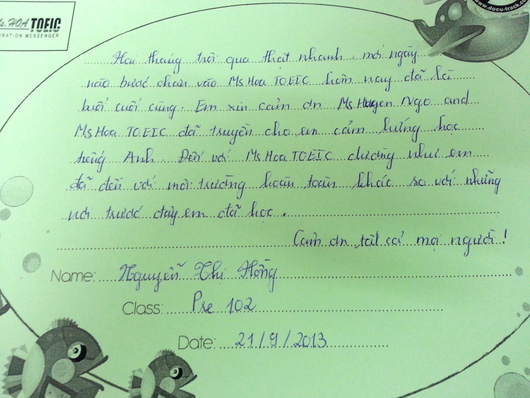 Ms. HOA TOEIC
www.docu-track.com
Hai tháng trôi qua thật nhanh. mới ngày
nào bước chân vào Ms Hoa TOEIC hôm nay đã là
buổi cuối cùng. Em xin cảm ơn Ms Huyen Ngo and
Ms Hoa TOEIC đã truyền cho em cảm hứng học
tiếng Anh. Đến với Ms Hoa TOEIC dường như em
đã đến với môi trường hoàn toàn khác so với những
nơi trước đây em đã học.
Cảm ơn tất cả mọi người!
Name: Nguyễn Thị Hồng
Class: Pre 102
Date: 21/9/2013